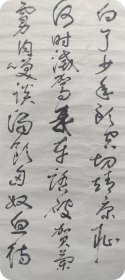 白了少年頭空悲切靖康恥
何时滅駕長車踏破賀蘭
虜肉笑談渴飲匈奴血待